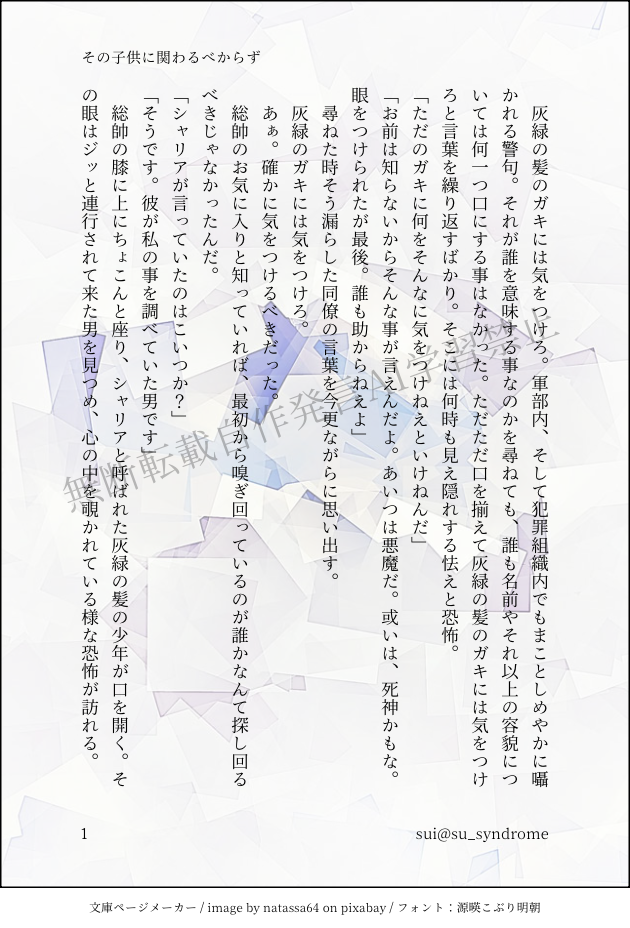 その子供に関わるべからず
灰緑の髪のガキには気をつけろ。軍部内、そして犯罪組織内でもまことしめやかに囁
かれる警句。それが誰を意味する事なのかを尋ねても、誰も名前やそれ以上の容貌につ
いては何一つ口にする事はなかった。ただただ口を揃えて灰緑の髪のガキには気をつけ
ろと言葉を繰り返すばかり。そこには何時も見え隠れする怯えと恐怖。
「ただのガキに何をそんなに気をつけねえといけねんだ」
「お前は知らないからそんな事が言えんだよ。あいつは悪魔だ。或いは、死神かもな。
眼をつけられたが最後。誰も助からねえよ」
尋ねた時そう漏らした同僚の言葉を今更ながらに思い出す。
灰緑のガキには気をつけろ。
あぁ。確かに気をつけるべきだった。
総帥のお気に入りと知っていれば、最初から嗅ぎ回っているのが誰かなんて探し回る
べきじゃなかったんだ。
「シャリアが言っていたのはこいつか？」
「そうです。彼が私の事を調べていた男です」
総帥の膝に上にちょこんと座り、シャリアと呼ばれた灰緑の髪の少年が口を開く。そ
の眼はジッと連行されて来た男を見つめ、心の中を覗かれている様な恐怖が訪れる。
無断転載自作発言AI学習禁止
1
sui@su_syndrome
文庫ページメーカー / image by natassa64 on pixabay / フォント：源暎こぶり明朝